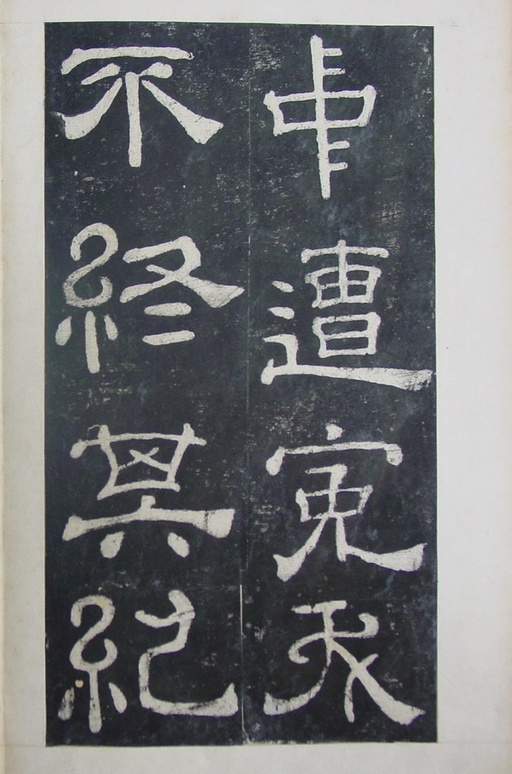 中遭寃夭
不終其紀